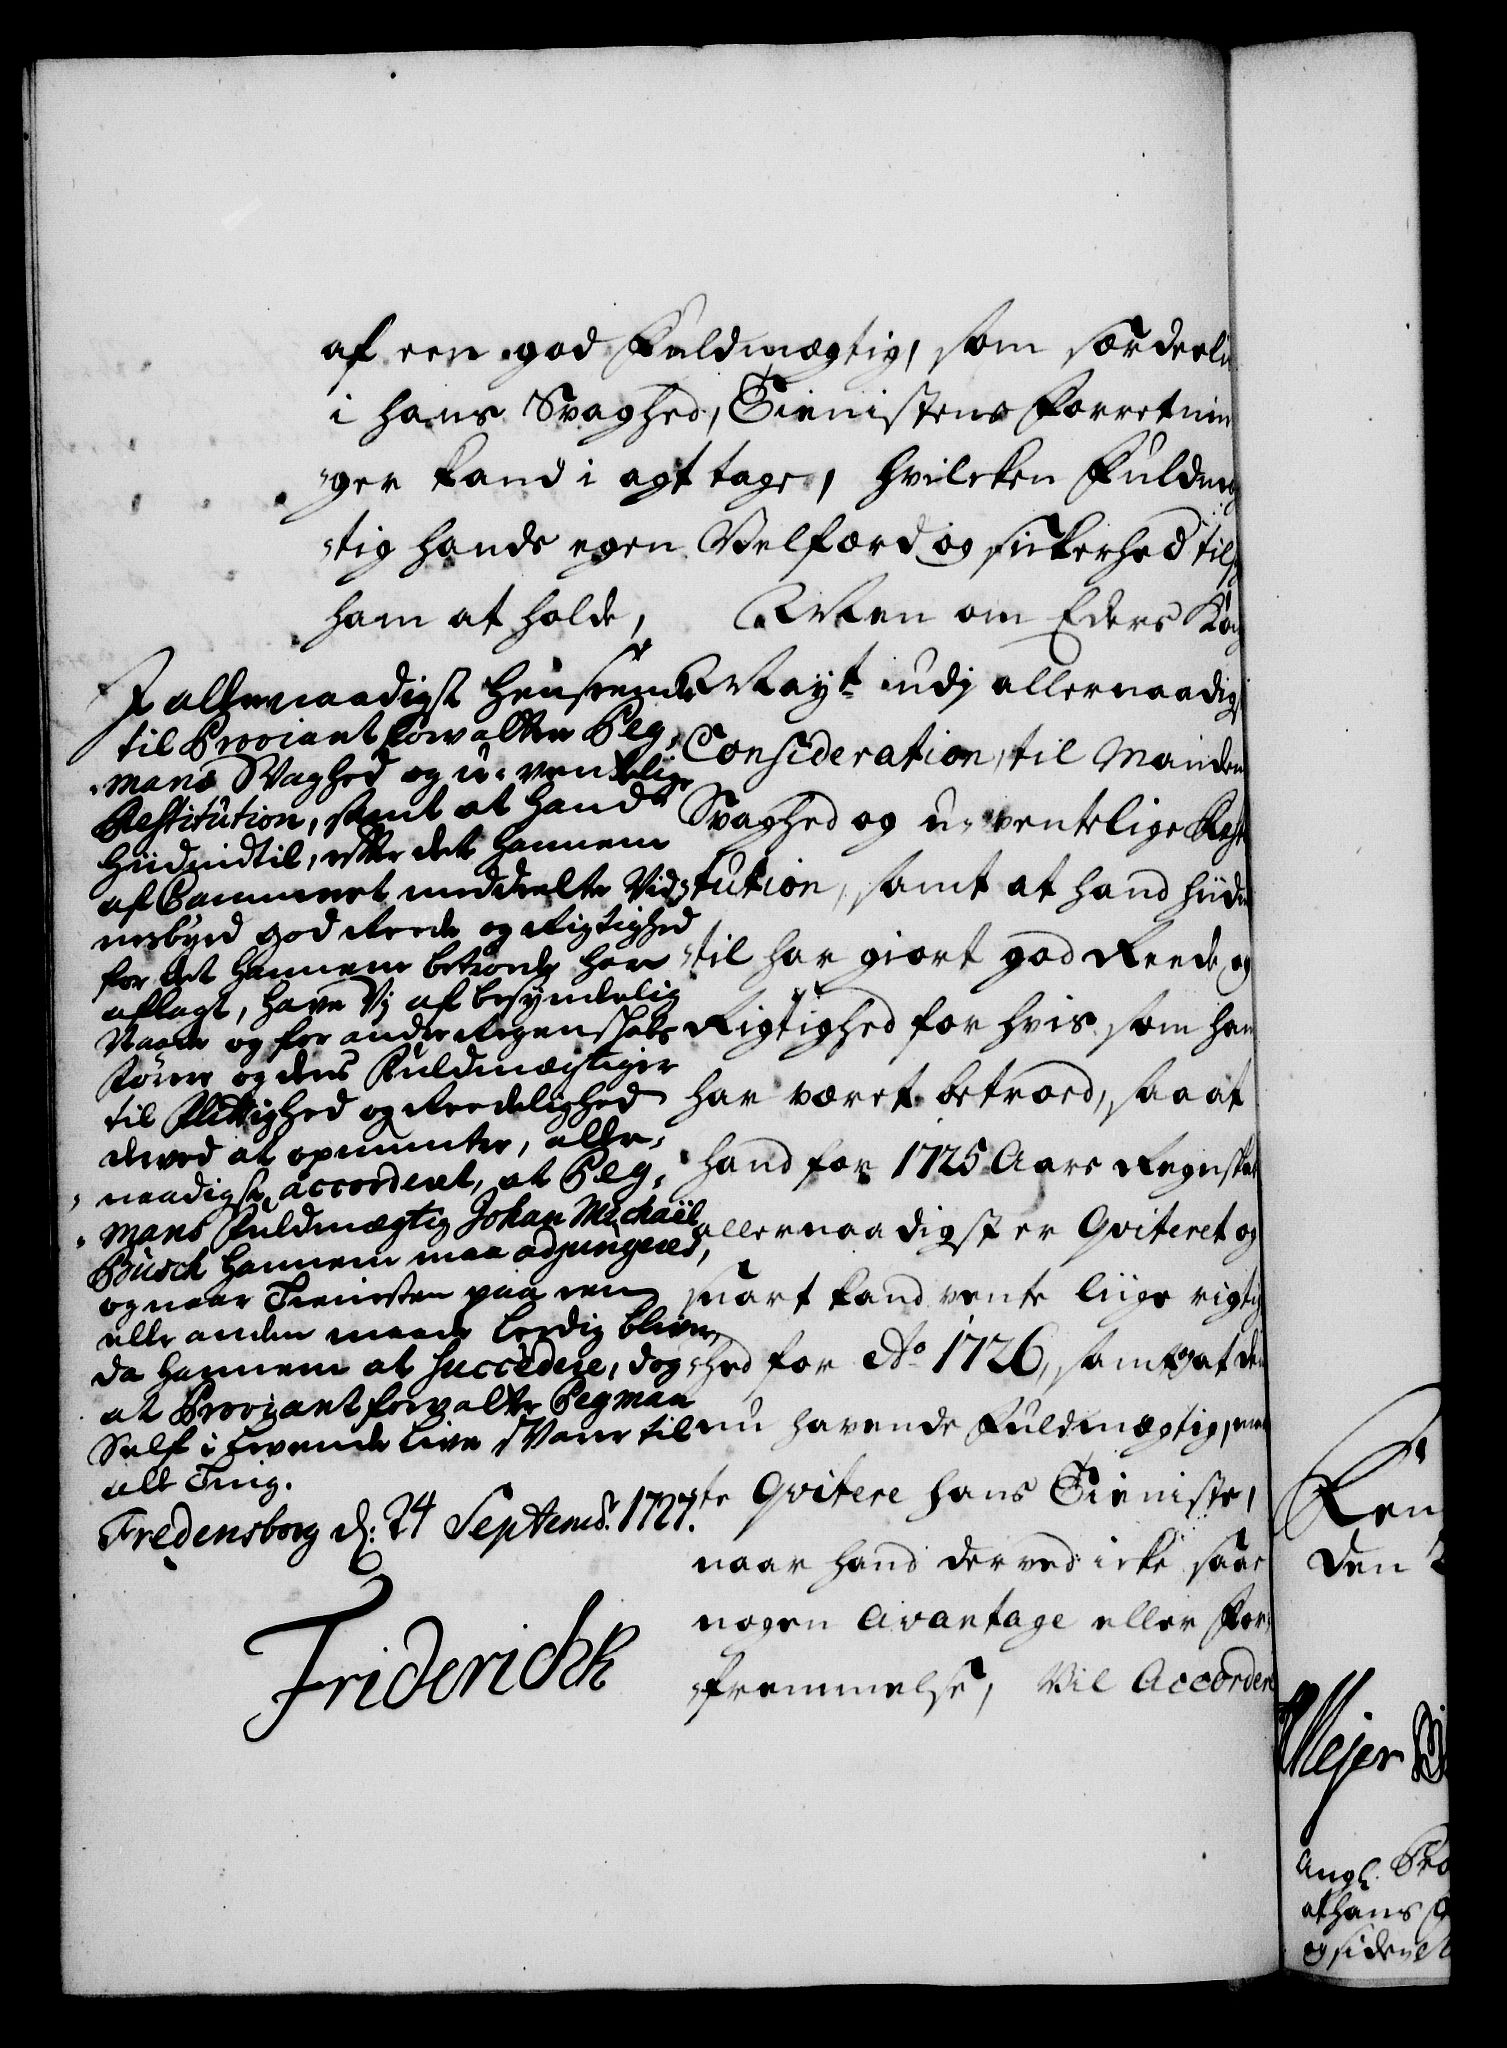 af een god Fuldmægtig, som særdeeli
i hans Svaghed, Tienistens Forretnin
ger kand i agt tage, hvilcken Fuldmæg
tig hands egen Velfærd og sickerhed tils
ham at holde, Men om Eders Kong
Mayt. udj allernaadigst
Consideration, til Manden
Svaghed og u-ventelige Resti
tution, samt at hand hiidin
til har giort god Reede og
Rigtighed for hvis som han
har været betroed, saa at
hand for 1725 Aars Regnskab
allernaadigst er Qviteret og
snart kand vente liige rigtig
hed for Ao. 1726, samt at den
nu havende Fuldmægtig,
te Qvitere hans Tieniste,
naar hand derved icke faar
nogen Avantage eller For
fremmelse, Vil Accordere
I allernaadigst Henseende
til Proviantforvalter Peg
mans Svaghed og u-ventelige
Restitution, samt at hand
hiidindtil, efter det hannem
af Cammeret meddeelte Vid
nesbyrd god Reede og Rigtighed
for det hannem betroede har
aflagt, have Vj af besynderlig
Naade og for andre Regenskabs
førere og dens Fuldmægtiger
til Flittighed og Reedelighed
derved at opmuntre, aller
naadigst accorderet, at Peg
mans Fuldmægtig Johan Michaël
Busch hannem maa adjungeres,
og naar Tienesten paa een
eller anden maade leedig bliver,
da hannem at succedere, dog
at Proviantforvalter Pegman
Self i Levende Live Svare til
alle Ting.
Fredensborg d: 24 Septembr. 1727.
Friderich R
Ren
den
Meyer
Angl. Pro
at hans
og siden